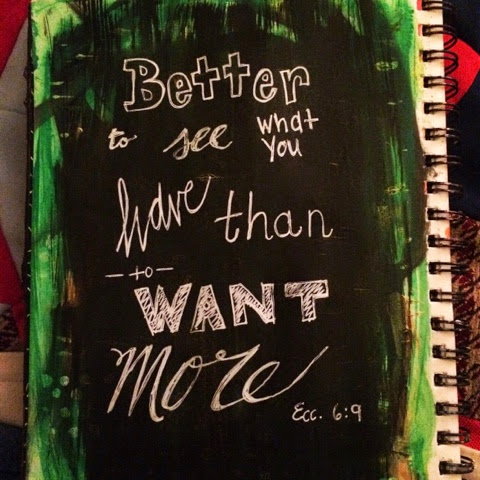 Better
to see what
you
have than
-to-
WANT
more
Ecc. 6:9